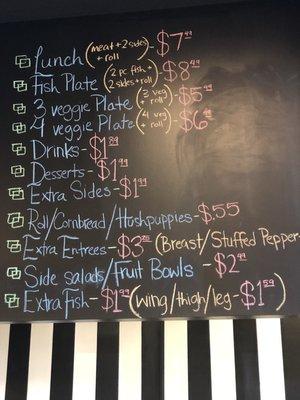 Lunch (meat + 2 sides + roll) - $7.49
Fish Plate (2 pc fish + 2 sides + roll) - $8.49
3 veggie Plate (3 veg + roll) - $5.49
4 veggie Plate (4 veg + roll) - $6.49
Drinks - $1.89
Desserts - $1.99
Extra Sides - $1.99
Roll/Cornbread/Hushpuppies - $.55
Extra Entrees - $3.25 (Breast/Stuffed Pepper-
Side salads/Fruit Bowls - $2.99
Extra Fish - $1.99 (wing/thigh/leg - $1.59)